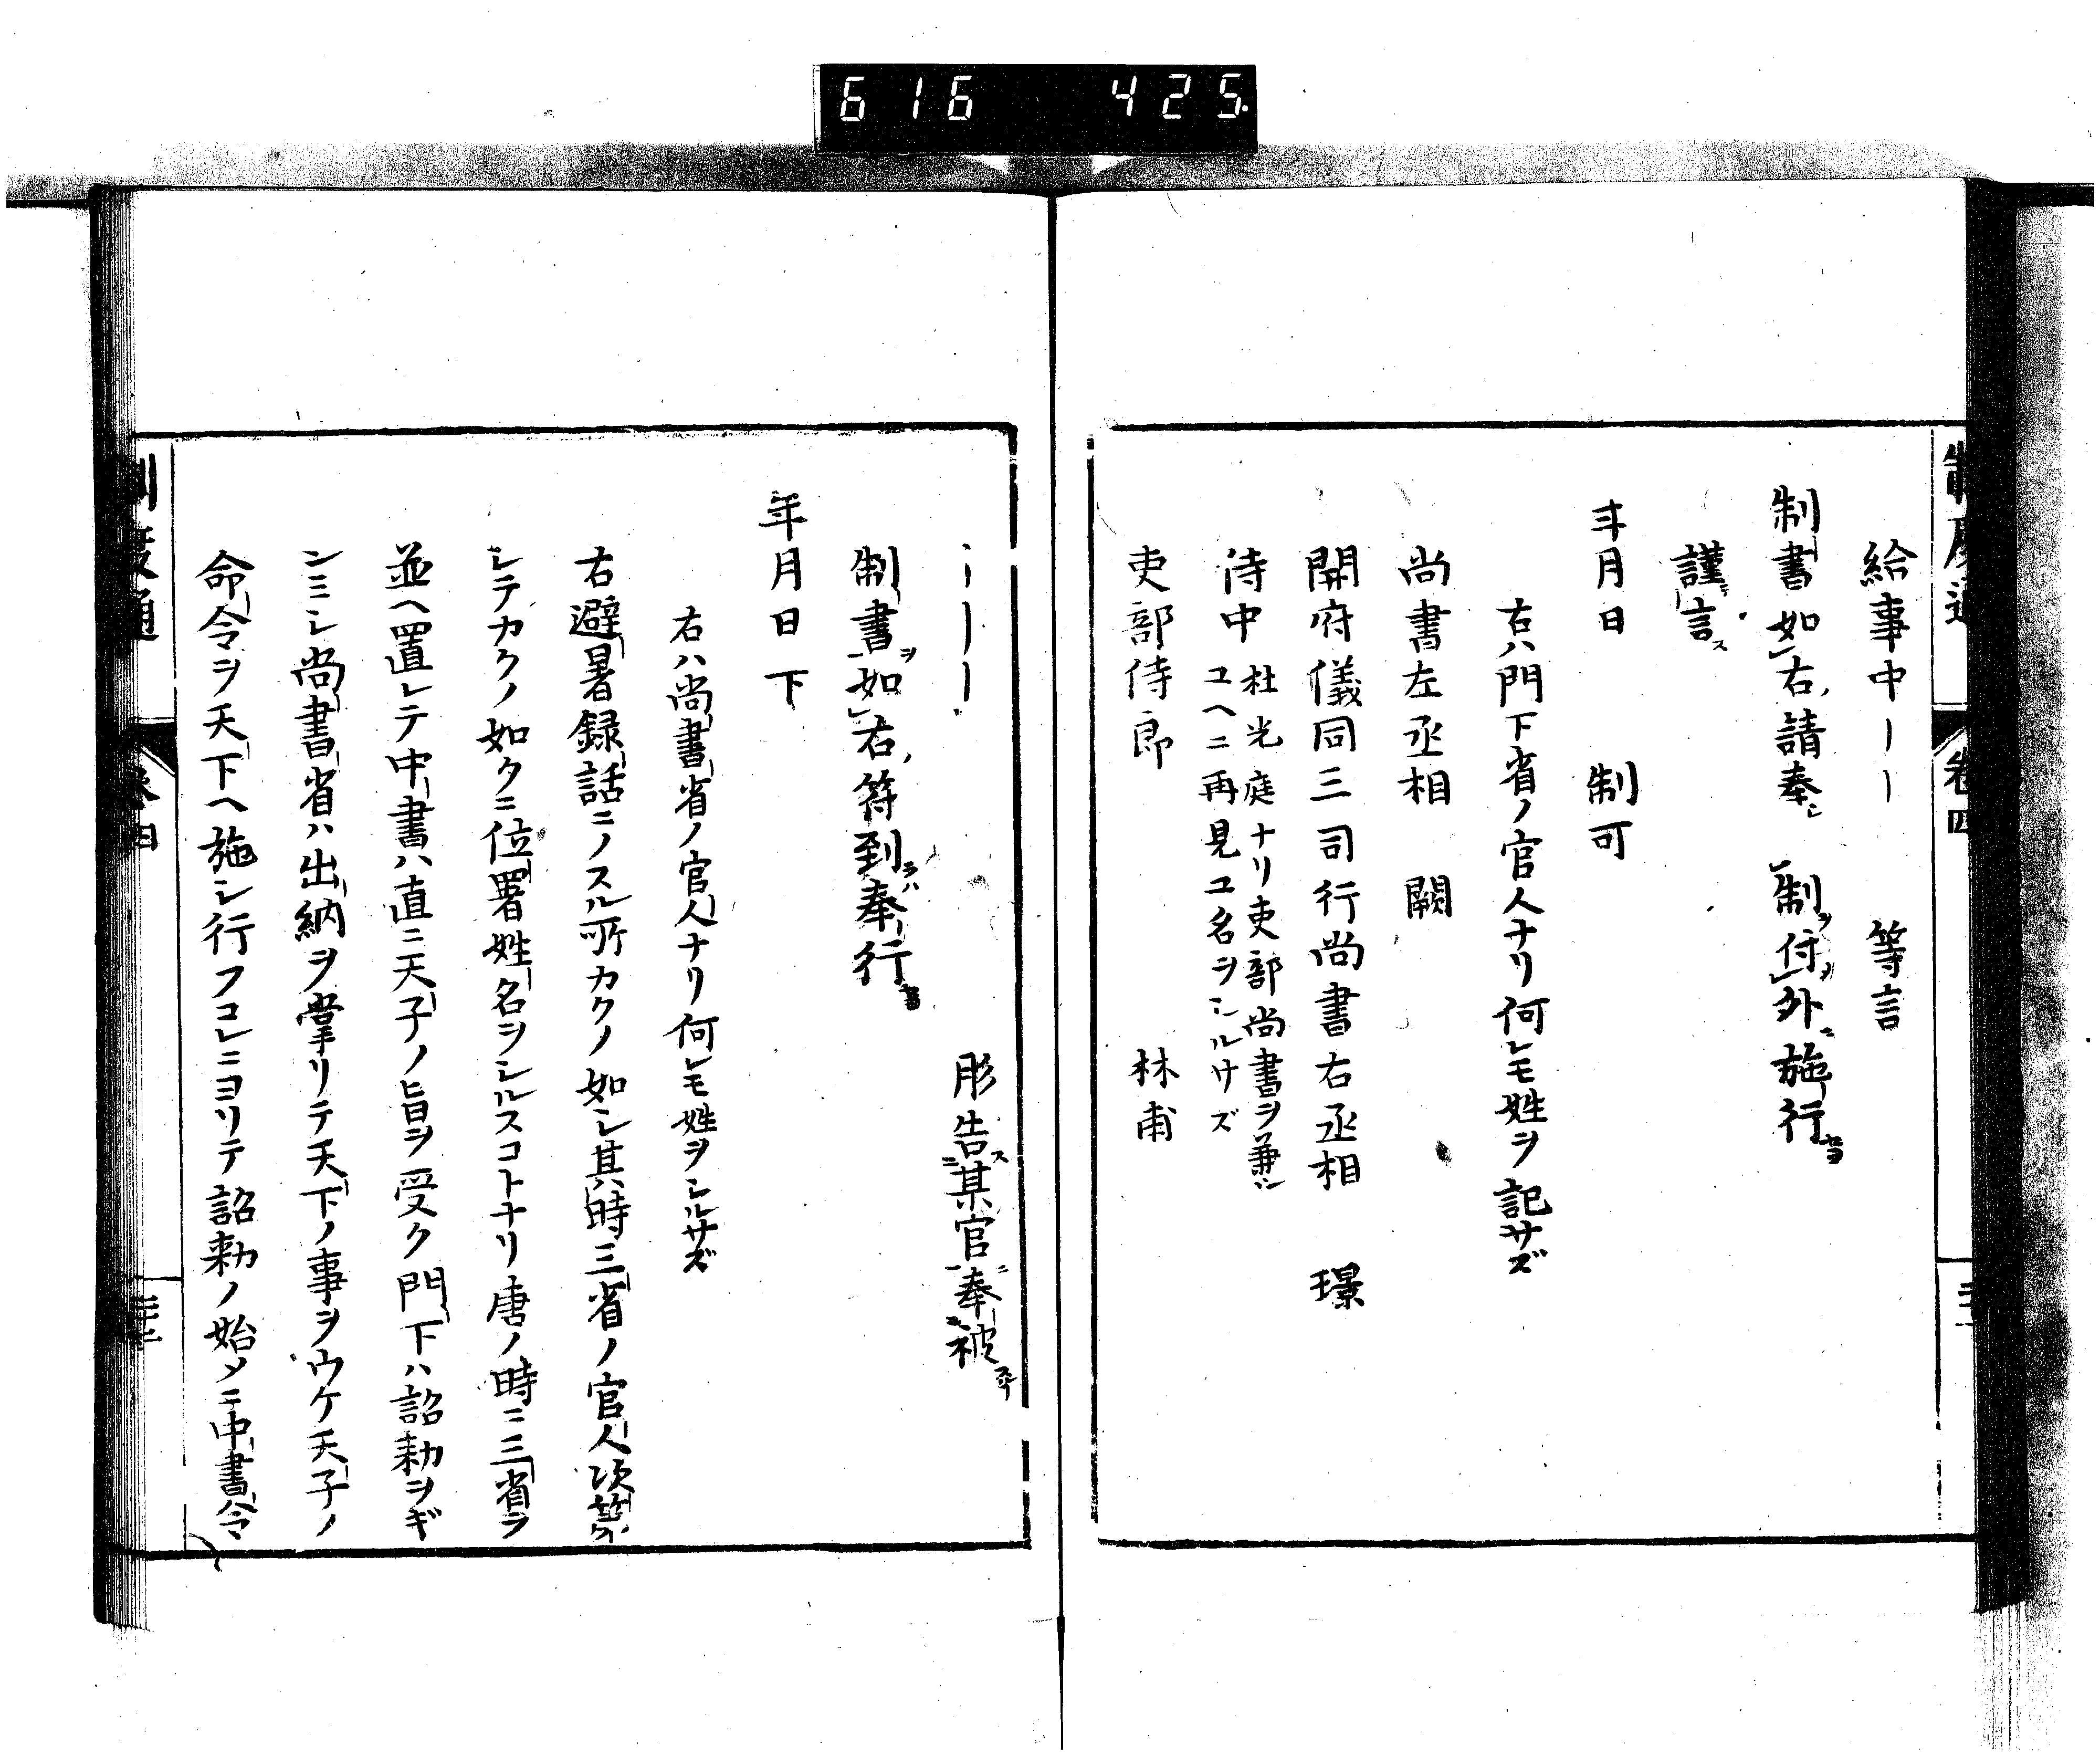 616 425
制度通 卷四
給事中｜｜ 等言
制書如右請奉 制付外施行
謹言
年月日 制可
右ハ門下省ノ官人ナリ何レモ姓ヲ記サズ
尚書左丞相 闕
開府儀同三司行尚書右丞相 璟
侍中 杜光庭ナリ吏部尚書ヲ兼
ユヘニ再見ユ名ヲシルサズ
吏部侍郎 林甫
｜｜｜｜ 彤告某官奉被
制書如右符到奉行
年月日下
右ハ尚書省ノ官人ナリ何レモ姓ヲシルサズ
右避暑録話ニノスル所カクノ如シ其時三省ノ官人次第
シテカクノ如クニ位署姓名ヲシルスコトナリ唐ノ時ニ三省ヲ
並ヘ置レテ中書ハ直ニ天子ノ旨ヲ受ク門下ハ詔勅ヲギ
ンミシ尚書省ハ出納ヲ掌リテ天下ノ事ヲウケ天子ノ
命令ヲ天下ヘ施シ行フコレニヨリテ詔勅ノ始メニ中書令
制度通 卷四